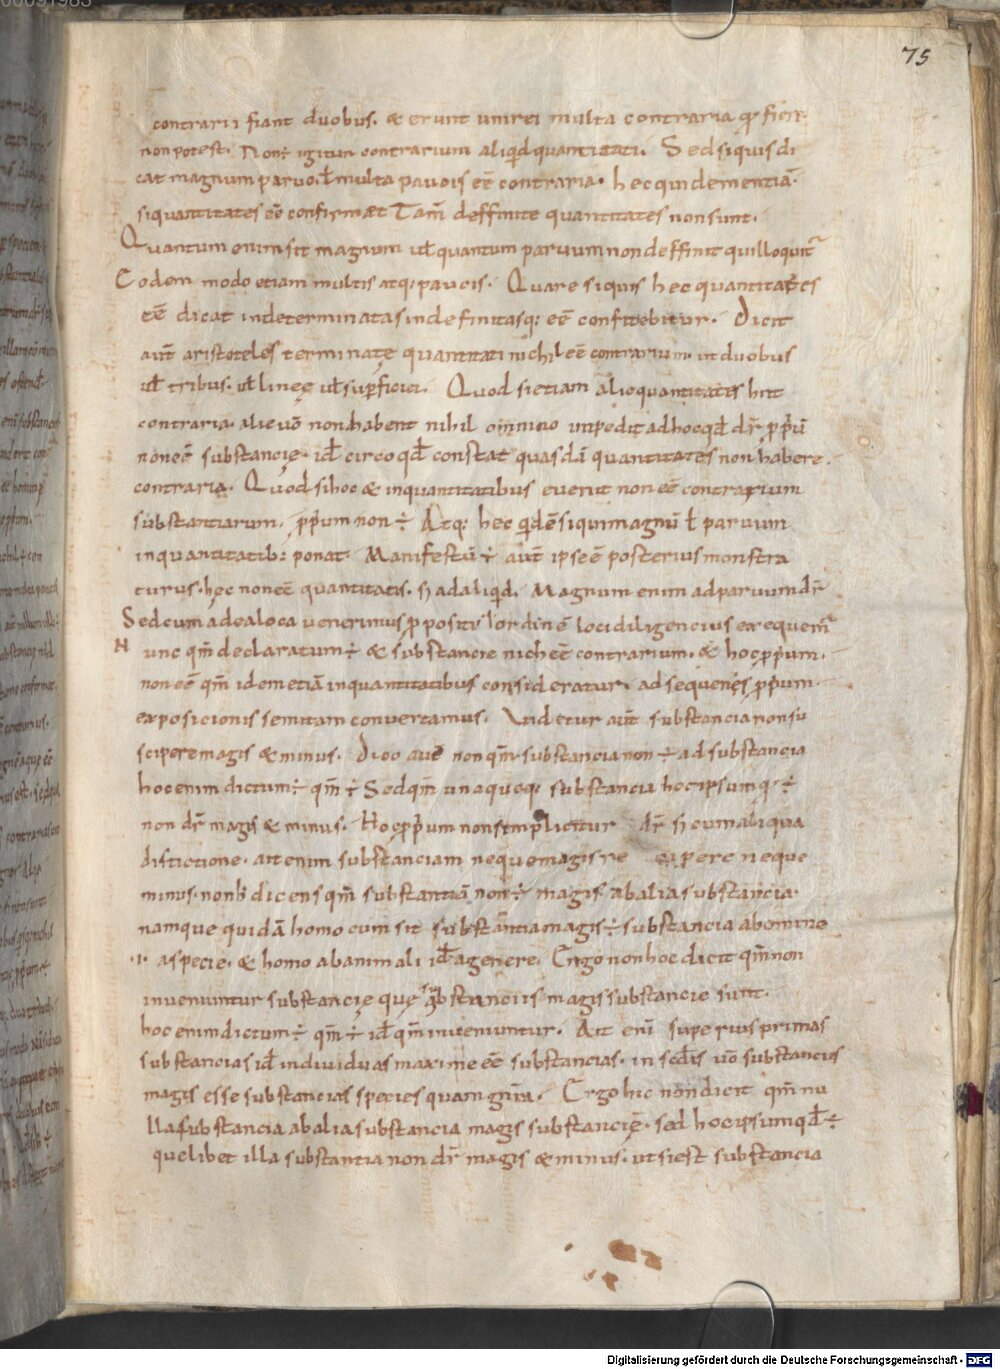 75
contrarii fiant duobus. & erunt uni rei multa contraria q̄ fieri
non potest. Non ÷ igitur contrarium aliqid quantitati. Sed siquis di
cat magnum parvo. ł multa paucis eē contraria. hec qui dementiā.
si quantitates eē confirmæt Tam̄ deffinite quantitates non sunt.
Quantum enim sit magnum uł quantum parvum non deffinit qui lloquit᷑
Eodem modo etiam multis atq; paucis. Quare siquis hec quantitates
eē dicat indeterminatas indefinitasq; eē confitebitur. Dicit
aut̄ aristoteles terminatę quantitati nichil eē contrarium. ut duobus
uł tribus. uł lineę uł superficiei. Quod si etiam alie quantitates hnt
contraria. alie uō non habent nihil omnino impedit ad hoc qđ dr̄ p̄priū
non eē substancię. id̄ circo qđ constat quasdā quantitates non habere.
contraria. Quod si hoc & in quantitatibus evenit non eē contrarium
substantiarum. p̄prium non ÷ Atq; hec qidē si qui magnū ł parvum
in quantitatib; ponat. Manifestū ÷ aut̄ ipse ē posterius monstra
turus. hec non eē quantitatis. s; ad aliqid. Magnum enim ad parvum dr̄
Sed cum ad ea loca venerimus p̄positū ordinē loci diligencius exequem᷑
N unc qm̄ declaratum ÷ & substancie nich eē contrarium. & hoc p̄prium.
non eē qm̄ idem etiā in quantitatibus consideratur. ad sequenęs p̄prium
exposicionis semitam convertamus. Videtur aut̄ substancia non su
scipere magis & minus. Dico aut̄ non qm̄ substancia non ÷ ad substancia
hoc enim dictum ÷ qm̄ ÷ Sed qm̄ unaqueq; substancia hoc ipsum q ÷
non dr̄ magis & minus. Hoc p̄prium non simpliciter dr̄ s; cum aliqua
distictione. ait enim substanciam neque magis re cipere neque
minus. non h dicens qm̄ substantiā non ÷ magis ab alia substancia.
namque quidā homo cum sit substantia magis ÷ substancia ab omine
.i. a specie. & homo ab animali id̄ a genere. Ergo non hoc dicit qm̄ non
inveniuntur substancię quę substanciis magis substancie sunt.
hoc enim dictum ÷ qm̄ ÷ id̄ qm̄ inveniuntur. Ait eni superius primas
substancias id̄ individuas maxime eē substancias. in secdis uō substancias
magis esse substancias species quam gn̄ra. Ergo hic non dicit qm̄ nu
lla substancia ab alia substancia magis substancię. sed hoc ipsum qđ ÷
quelibet illa substantia non dr̄ magis & minus. ut si est substancia
Digitalisierung gefördert durch die Deutsche Forschungsgemeinschaft - DFG